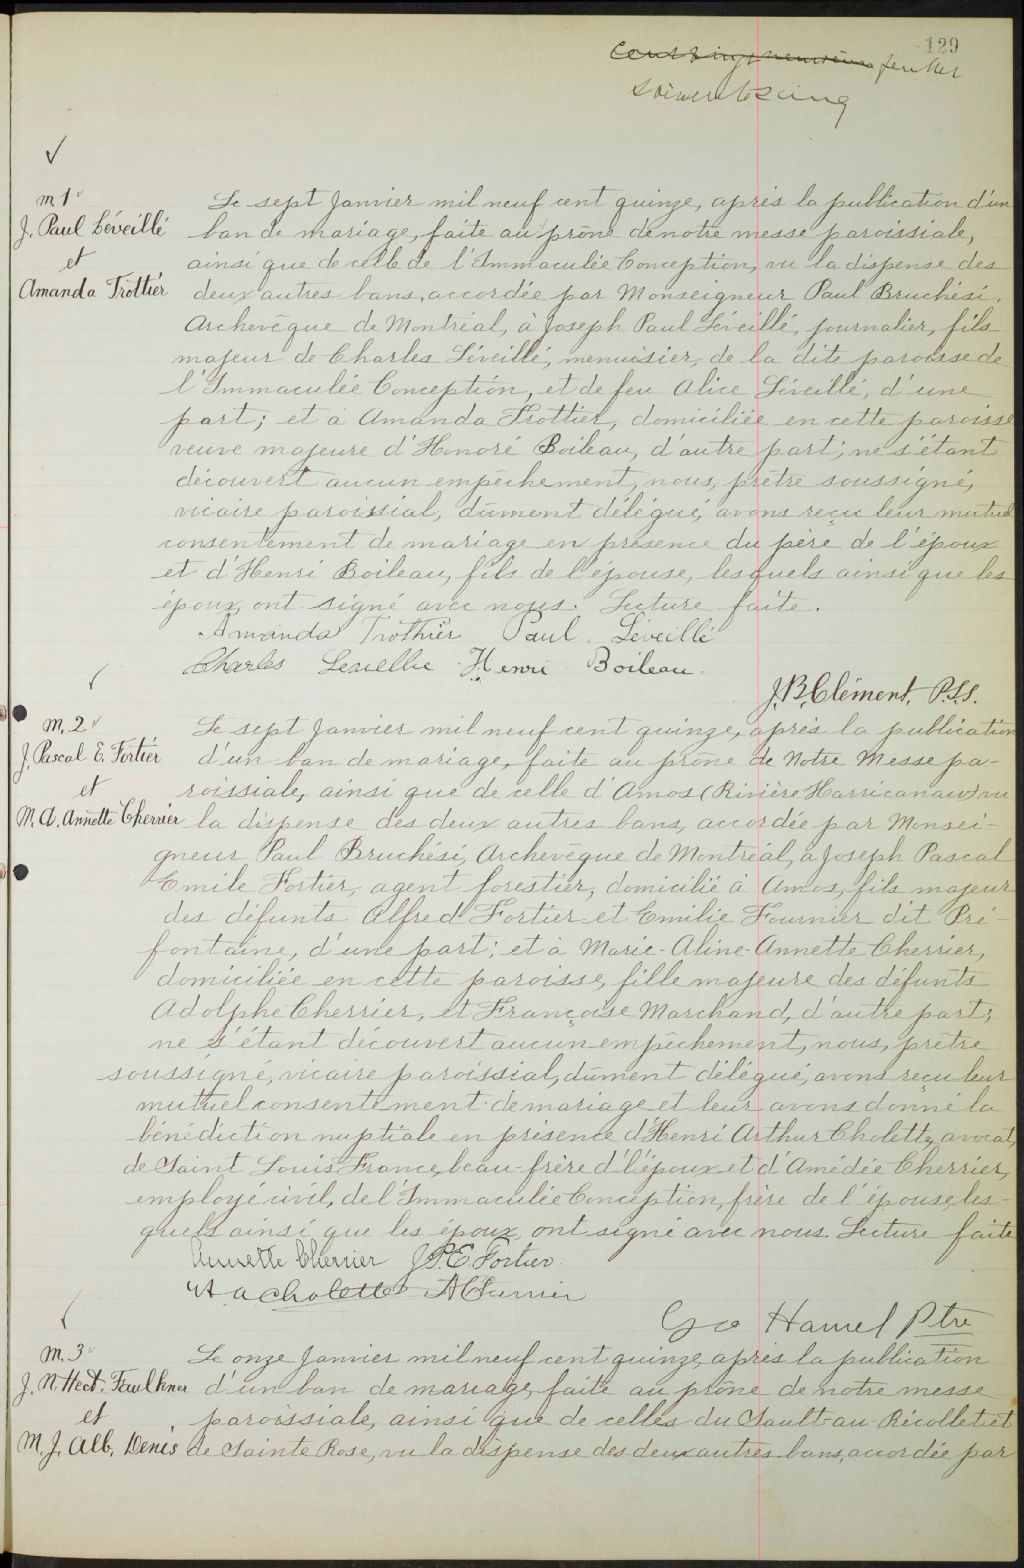 129
feuillet
soixante cinq
m 1
J. Paul Léveillé
et
Amanda Trottier
Le sept Janvier mil neuf cent quinze, après la publication d'un
ban de mariage, faite au prône de notre messe paroissiale,
ainsi que de celle de l'Immaculée Conception, vu la dispense des
deux autres bans, accordée par Monseigneur Paul Bruchési,
Archevêque de Montréal, à Joseph Paul Léveillé, journalier, fils
majeur de Charles Léveillé, menuisier, de la dite paroisse de
l'Immaculée Conception, et de feu Alice Léveillé, d'une
part; et à Amanda Trottier, domiciliée en cette paroisse
veuve majeure d'Honoré Boileau, d'autre part; ne s'étant
découvert aucun empêchement, nous, prêtre soussigné,
vicaire paroissial, dûment délégué, avons reçu leur mutuel
consentement de mariage en présence du père de l'époux
et d'Henri Boileau, fils de l'épouse, lesquels ainsi que les
époux, ont signé avec nous. Lecture faite.
Amanda Trothier Paul Léveillé
Charles Henri Boileau.
J. B. Clément, P.S.S.
m. 2
J. Pascal E. Fortier
et
M. A. Annette Cherrier
Le sept Janvier mil neuf cent quinze, après la publication
d'un ban de mariage, faite au prône de Notre Messe pa-
roissiale, ainsi que de celle d'Amos (Rivière Harricanaw) vu
la dispense des deux autres bans, accordée par Monsei-
gneur Paul Bruchési, Archevêque de Montréal, à Joseph Pascal
Emile Fortier, agent forestier, domicilié à Amos, fils majeur
des défunts Alfred Fortier et Emilie Fournier dit Pré-
fontaine, d'une part; et à Marie-Aline-Annette Cherrier,
domiciliée en cette paroisse, fille majeure des défunts
Adolphe Cherrier, et Françoise Marchand, d'autre part;
ne s'étant découvert aucun empêchement, nous, prêtre
soussigné, vicaire paroissial, dûment délégué, avons reçu leur
mutuel consentement de mariage et leur avons donné la
bénédiction nuptiale en présence d'Henri Arthur Cholette, avocat,
de Saint Louis France, beau-frère d'l'époux et d'Amédée Cherrier,
employé civil, de l'Immaculée Conception, frère de l'épouse, les-
quels ainsi que les époux, ont signé avec nous. Lecture faite
Annette Cherrier J.P.E. Fortier.
H A Cholette A Cherrier
Geo Hamel Ptre
m. 3
J. N. Hect. Faulkner
et
M. J. Alb. Denis
Le onze Janvier mil neuf cent quinze, après la publication
d'un ban de mariage, faite au prône de notre messe
paroissiale, ainsi que de celles du Sault-au-Récollet et
de Sainte Rose, vu la dispense des deux autres bans, accordée par